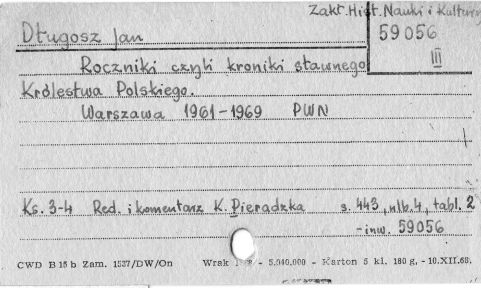 Zakł. Hist. Nauki i Kultury
Długosz Jan
59056
III
Roczniki czyli kroniki sławnego
Królestwa Polskiego.
Warszawa 1961-1969 PWN
Ks. 3-4 Red. i komentarz K. Pieradzka s. 443, nlb. 4, tabl. 2
- inw. 59056
CWD B 15 b Zam. 1537/DW/On Wrak - 5.040.000 - Karton 5 kl. 180 g. - 10.XII.68.